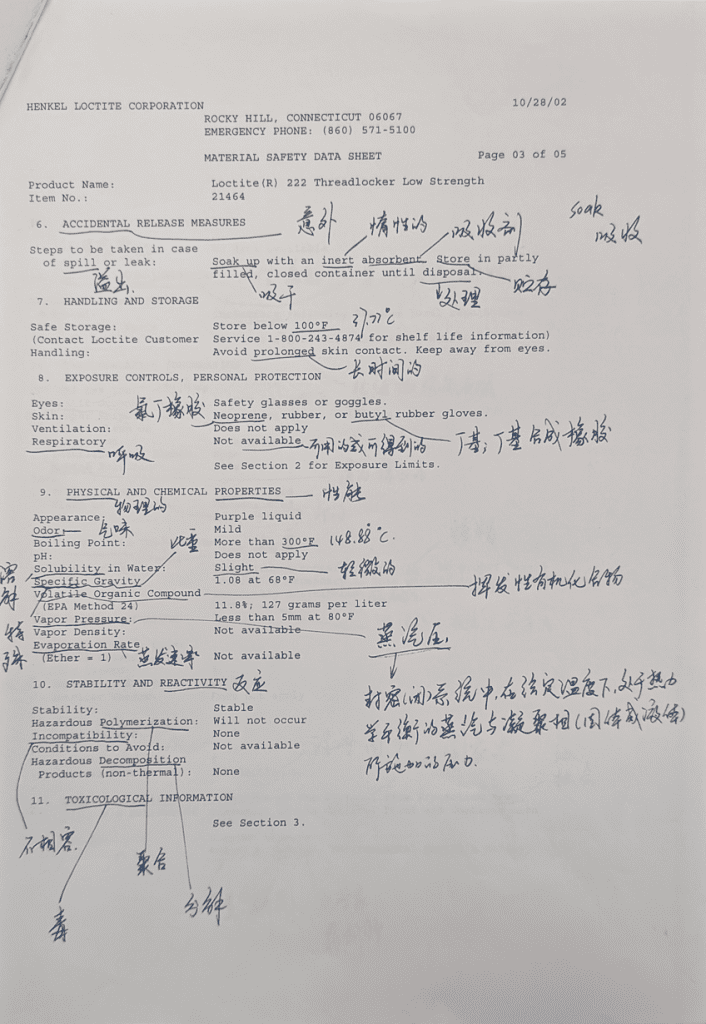 HENKEL LOCTITE CORPORATION 10/28/02
ROCKY HILL, CONNECTICUT 06067
EMERGENCY PHONE: (860) 571-5100
MATERIAL SAFETY DATA SHEET Page 03 of 05
Product Name: Loctite(R) 222 Threadlocker Low Strength
Item No.: 21464
6. ACCIDENTAL RELEASE MEASURES 意外 惰性的 吸收剂 soak
吸收
Steps to be taken in case
of spill or leak: Soak up with an inert absorbent. Store in partly
filled, closed container until disposal.
溢出 吸干 处理 贮存
7. HANDLING AND STORAGE
Safe Storage: Store below 100°F 37.77℃
(Contact Loctite Customer Service 1-800-243-4874 for shelf life information)
Handling: Avoid prolonged skin contact. Keep away from eyes.
长时间的
8. EXPOSURE CONTROLS, PERSONAL PROTECTION
Eyes: Safety glasses or goggles.
Skin: 氯丁橡胶 Neoprene, rubber, or butyl rubber gloves.
Ventilation: Does not apply
Respiratory Not available 可用的或可得到的 丁基;丁基合成橡胶
呼吸
See Section 2 for Exposure Limits.
9. PHYSICAL AND CHEMICAL PROPERTIES 性能
物理的
Appearance: Purple liquid
Odor: 气味 Mild
Boiling Point: 比重 More than 300°F 148.88℃.
pH: Does not apply
Solubility in Water: Slight 轻微的
溶解
Specific Gravity 1.08 at 68°F
特殊
Volatile Organic Compound 挥发性有机化合物
(EPA Method 24) 11.8%; 127 grams per liter
Vapor Pressure: Less than 5mm at 80°F
Vapor Density: Not available 蒸汽压
Evaporation Rate
(Ether = 1) 蒸发速率 Not available
10. STABILITY AND REACTIVITY 反应
封密(闭)系统中,在给定温度下,处于热力
学平衡的蒸汽与凝聚相(固体或液体)
所施加的压力.
Stability: Stable
Hazardous Polymerization: Will not occur
Incompatibility: None
Conditions to Avoid: Not available
Hazardous Decomposition
Products (non-thermal): None
11. TOXICOLOGICAL INFORMATION
See Section 3.
不相容.
聚合
分解
毒